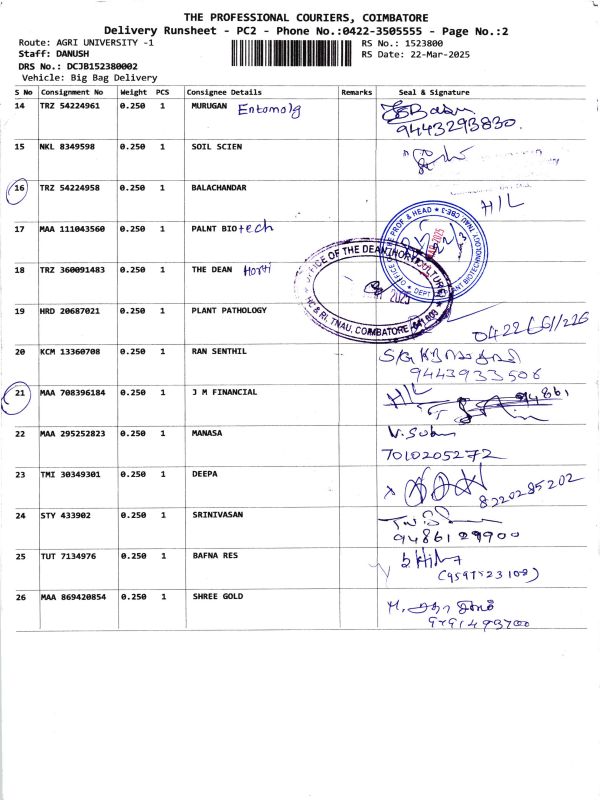 THE PROFESSIONAL COURIERS, COIMBATORE
Delivery Runsheet - PC2 - Phone No.:0422-3505555 - Page No.:2
Route: AGRI UNIVERSITY -1 RS No.: 1523800
Staff: DANUSH RS Date: 22-Mar-2025
DRS No.: DCJB152380002
Vehicle: Big Bag Delivery
S No Consignment No Weight PCS Consignee Details Remarks Seal & Signature
14 TRZ 54224961 0.250 1 MURUGAN Entomolg
9443293830.
15 NKL 8349598 0.250 1 SOIL SCIEN
16 TRZ 54224958 0.250 1 BALACHANDAR H/L
17 MAA 111043560 0.250 1 PALNT BIOtech
18 TRZ 360091483 0.250 1 THE DEAN Horti
OFFICE OF THE DEAN(HORTICULTURE)
2025
HC & RI, TNAU, COIMBATORE - 641 003.
19 HRD 20687021 0.250 1 PLANT PATHOLOGY
0422
20 KCM 13360708 0.250 1 RAN SENTHIL
9443933506
21 MAA 708396184 0.250 1 J M FINANCIAL H/L 94861
22 MAA 295252823 0.250 1 MANASA
7010205272
23 TMI 30349301 0.250 1 DEEPA
8220285202
24 STY 433902 0.250 1 SRINIVASAN
9486129900
25 TUT 7134976 0.250 1 BAFNA RES
26 MAA 869420854 0.250 1 SHREE GOLD